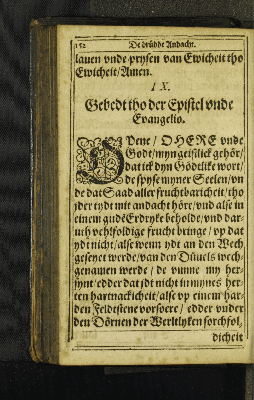 152 De drüdde Andacht.
lauen vnde prysen van Ewicheit tho
Ewicheit/Amen.
IX.
Gebedt tho der Epistel vnde
Evangelio.
OPene/ O HERE vnde
Godt/myn geistlick gehör/
dat ick dyn Gödtlike wort/
de spyse myner Seelen/vn
de dat Saad aller fruchtbaricheit/tho
yder tydt mit andacht höre/vnd alse in
einem gudē Erdryke beholde/vnd dar-
uth vehtfoldige frucht bringe/ vp dat
ydt nicht/alse wenn ydt an den Wech
geseyet werde/van den Düuels wech-
genamen werde/ de vünne my her-
synt/edder dat ydt nicht in mynes her-
ten hartnackicheit/alse vp einem har-
den Feldtstene vorsoere/ edder vnder
den Dörnen der Werltlyken sorchfol-
dicheit